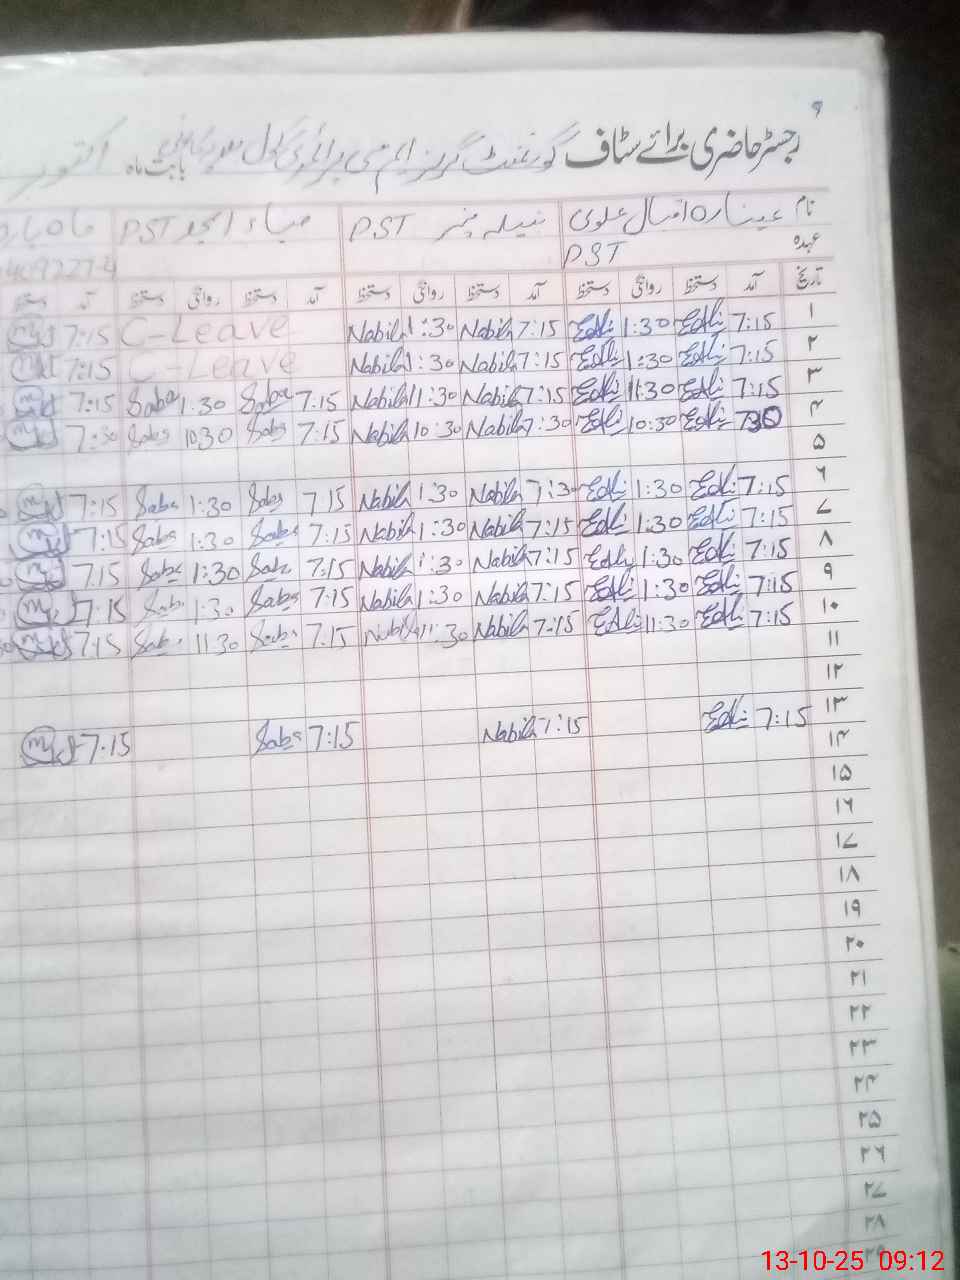 ۹
رجسٹر حاضری برائے سٹاف گورنمنٹ گرلز ایم سی پرائمری سکول بابت ماہ اکتوبر
نام اقبال علوی نبیلہ PST صباء امجد PST
عہدہ PST
تاریخ آمد دستخط روانگی دستخط آمد دستخط روانگی دستخط آمد دستخط روانگی دستخط آمد دستخط
۱ 7:15 1:30 7:15 Nabila 1:30 Nabila C-Leave 7:15
۲ 7:15 1:30 7:15 Nabila 1:30 Nabila C-Leave 7:15
۳ 7:15 11:30 7:15 Nabila 11:30 Nabila 7:15 Saba 1:30 Saba 7:15
۴ 7:30 10:30 7:30 Nabila 10:30 Nabila 7:15 Saba 10:30 Saba 7:30
۵
۶ 7:15 1:30 7:30 Nabila 1:30 Nabila 7:15 Saba 1:30 Saba 7:15
۷ 7:15 1:30 7:15 Nabila 1:30 Nabila 7:15 Saba 1:30 Saba 7:15
۸ 7:15 1:30 7:15 Nabila 1:30 Nabila 7:15 Saba 1:30 Saba 7:15
۹ 7:15 1:30 7:15 Nabila 1:30 Nabila 7:15 Saba 1:30 Saba 7:15
۱۰ 7:15 11:30 7:15 Nabila 11:30 Nabila 7:15 Saba 11:30 Saba 7:15
۱۱
۱۲
۱۳ 7:15 7:15 Nabila 7:15 Saba 7:15
۱۴
۱۵
۱۶
۱۷
۱۸
۱۹
۲۰
۲۱
۲۲
۲۳
۲۴
۲۵
۲۶
۲۷
۲۸
۲۹
13-10-25 09:12